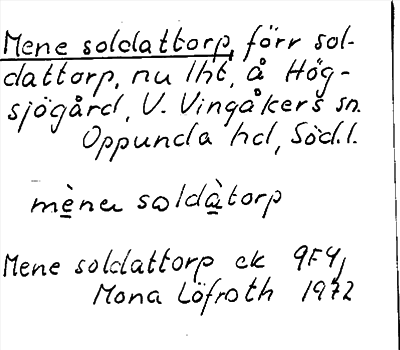 Mene soldattorp, förr sol-
dattorp, nu lht, å Hög-
sjögård, V. Vingåkers sn.
Oppunda hd, Söd.l.
mèna soldàtorp
Mene soldattorp ek 9F4,
Mona Löfroth 1972